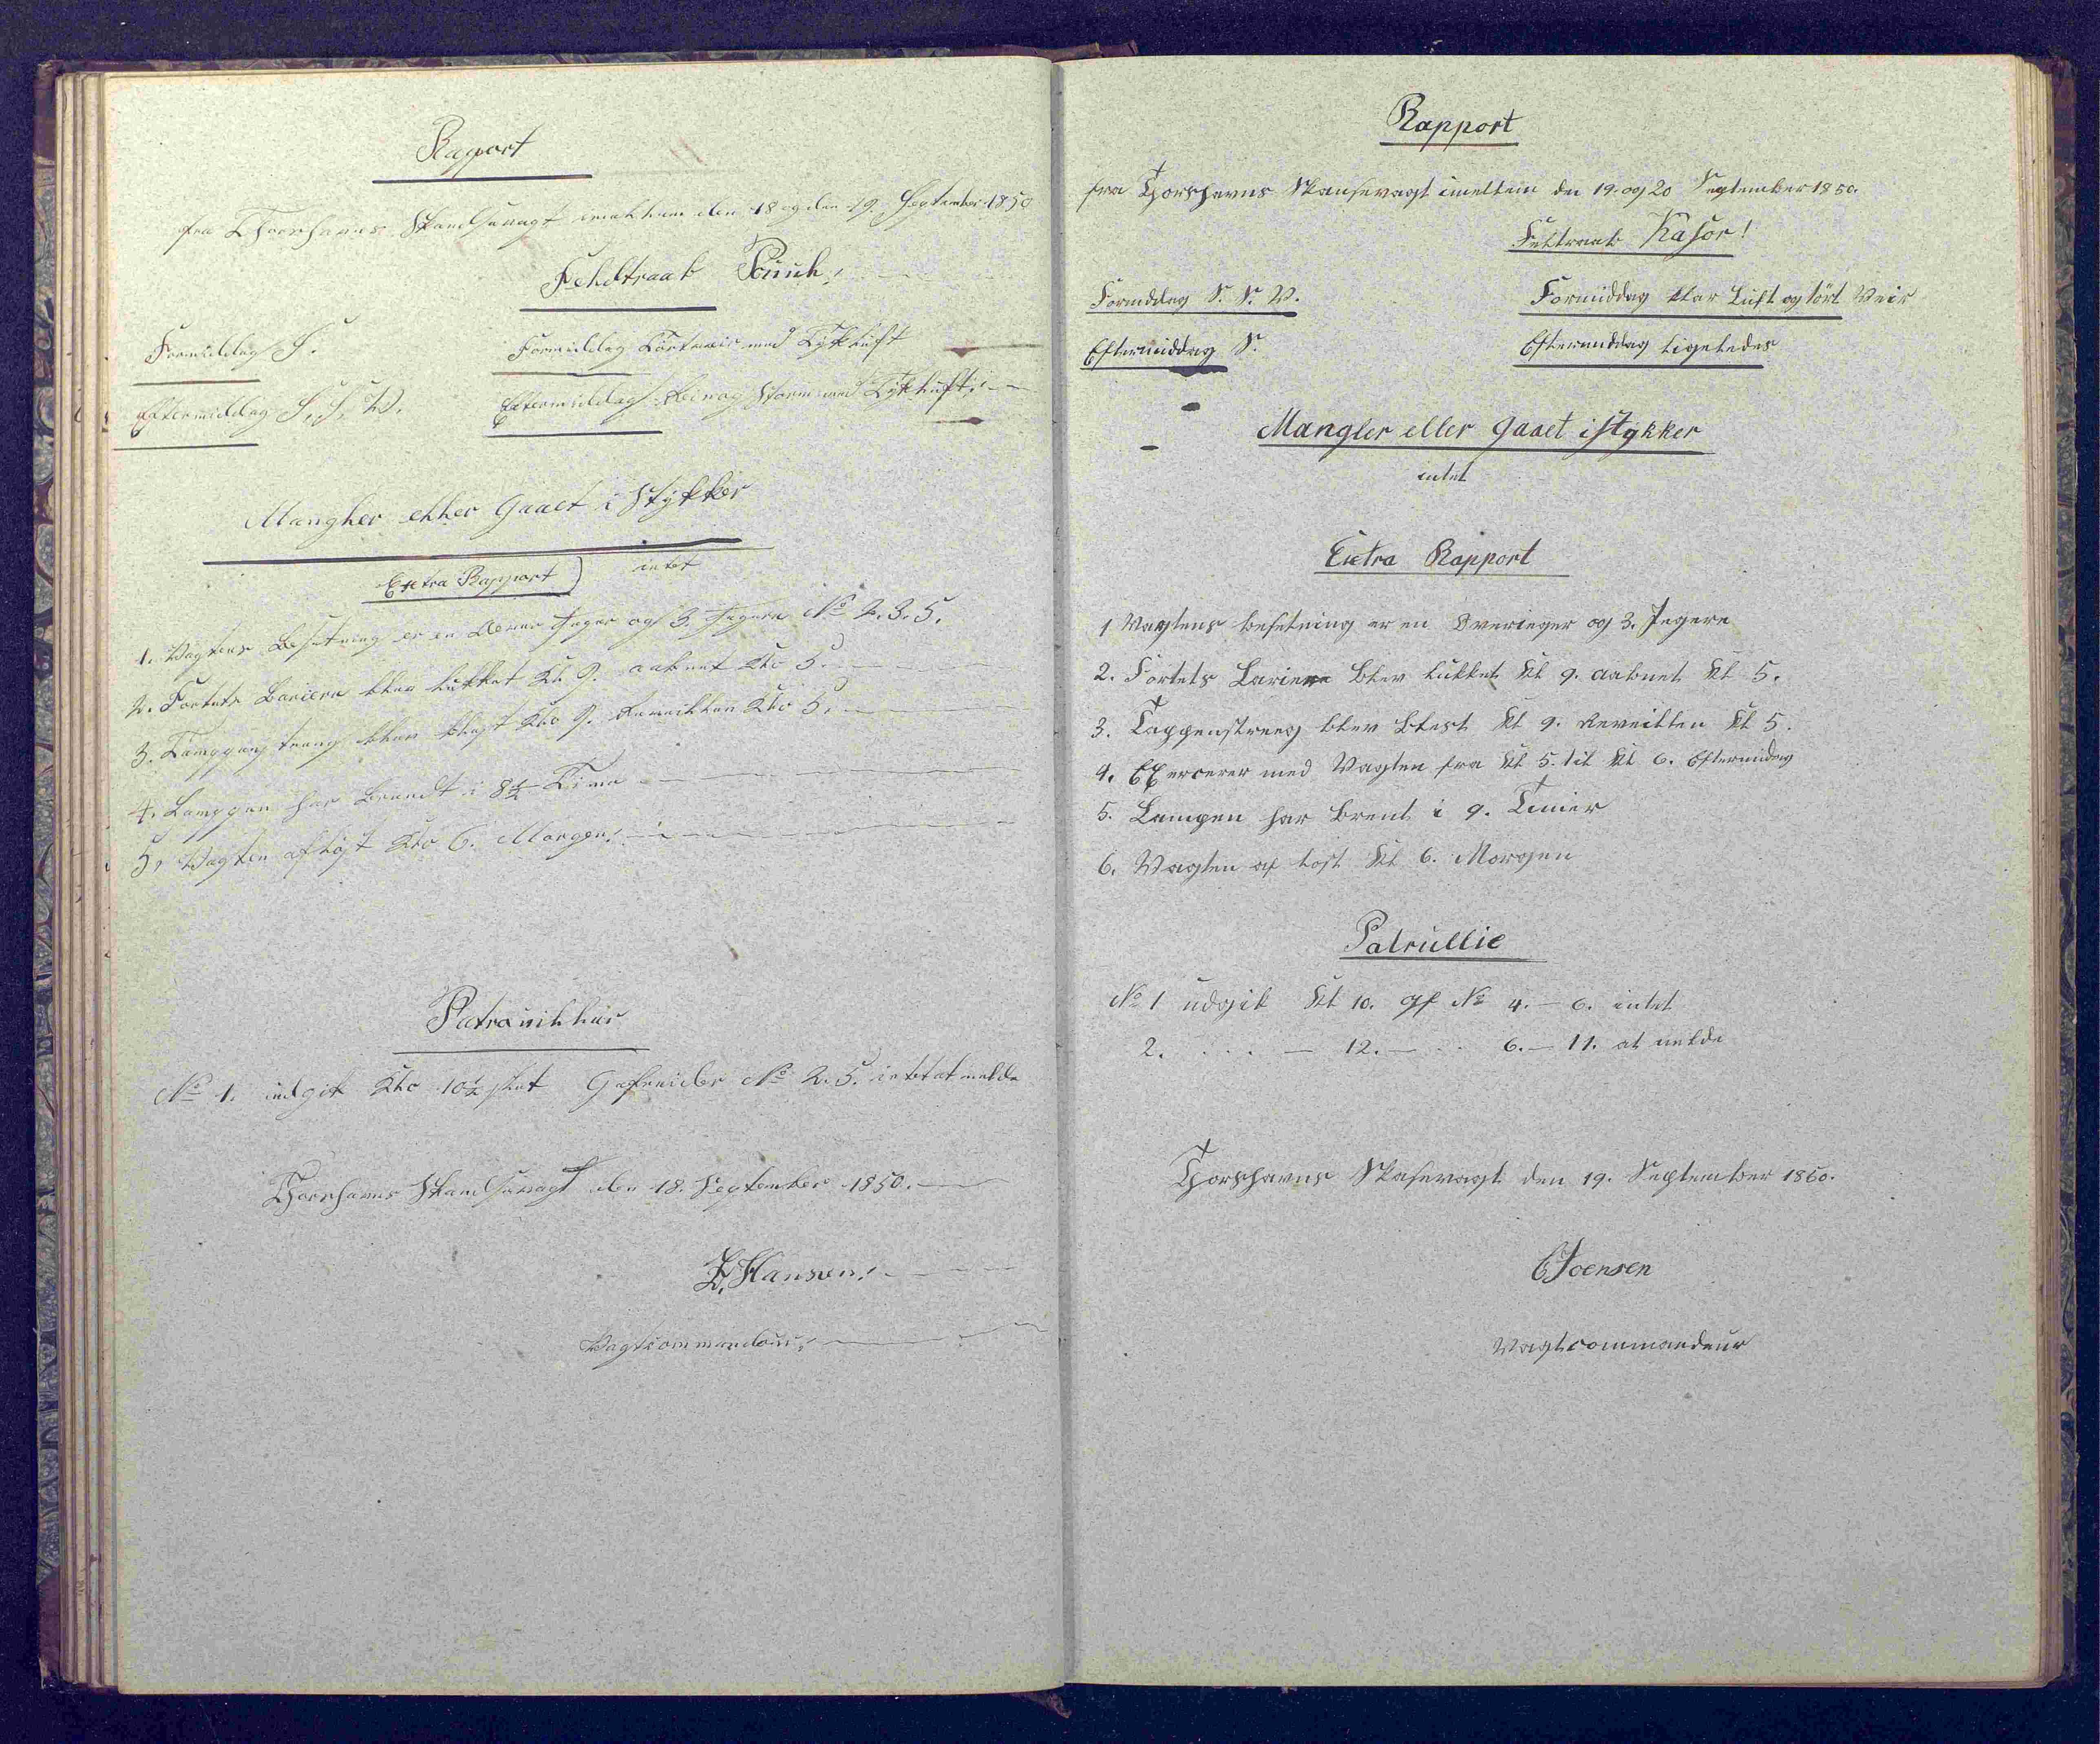 Raport
fra Thorshavns Skandsevagt imellem den 18 og den 19 September 1850
Fehdtraab Puuch!
Formiddag S.
Formiddag Tørtveir med Tÿkluft
Eftermiddag S. S. W.
Eftermiddag Rein og Storm med Tÿkluft!
Mangher ehher Gaaet i Stÿkker
intet
Extra Rapport
1. Vagtens Besetning er en Overjeger og 3 Jegere No 2. 3. 5.
2. Fortets Bariere blev lukket Kl 9. aabnet Klo 5.
3. blev blest Klo 9. Reveillen Klo 5.
4. Lamppen har Brendt i 8½ Time
5. Vagten afløst Klo 6. Morgen!
No 1. udgik Klo 10½ slut Gefreider No 2. 5. intet at melde
Thorshavns Skandsevagt den 18. September 1850.
Hansen!
Vagtcommandeur!
Rapport
fra Thorshavns Skansevagt imellem den 19. og 20 September 1850.
Feltraab Kasor!
Formiddag S. S. W.
Formiddag klar Luft og tört Veir
Eftermiddag S.
Eftermiddag ligeledes
Mangler eller gaaet istykker
intet
Extra Rapport
1 Vagtens besetning er en Overieger og 3. Jegere
2. Fortets Bariere blev lukket Kl 9. aabnet Kl 5.
3. Tappenstreeg blev blest Kl 9. Reveillen Kl 5.
4. Exercerer med Vagten fra Kl 5. til Kl 6. Eftermidag
5. Lampen har brent i 9. Timer
6. Vagten af lost Kl 6. Morgen
Patrullie
No 1 udgik Kl 10. gf No 4. – 6. intet
2. . . . . – 12. – . . 6. – 11. at melde
Thorshavns Skasevagt den 19. September 1850.
CJoensen
Vagtcommandeur